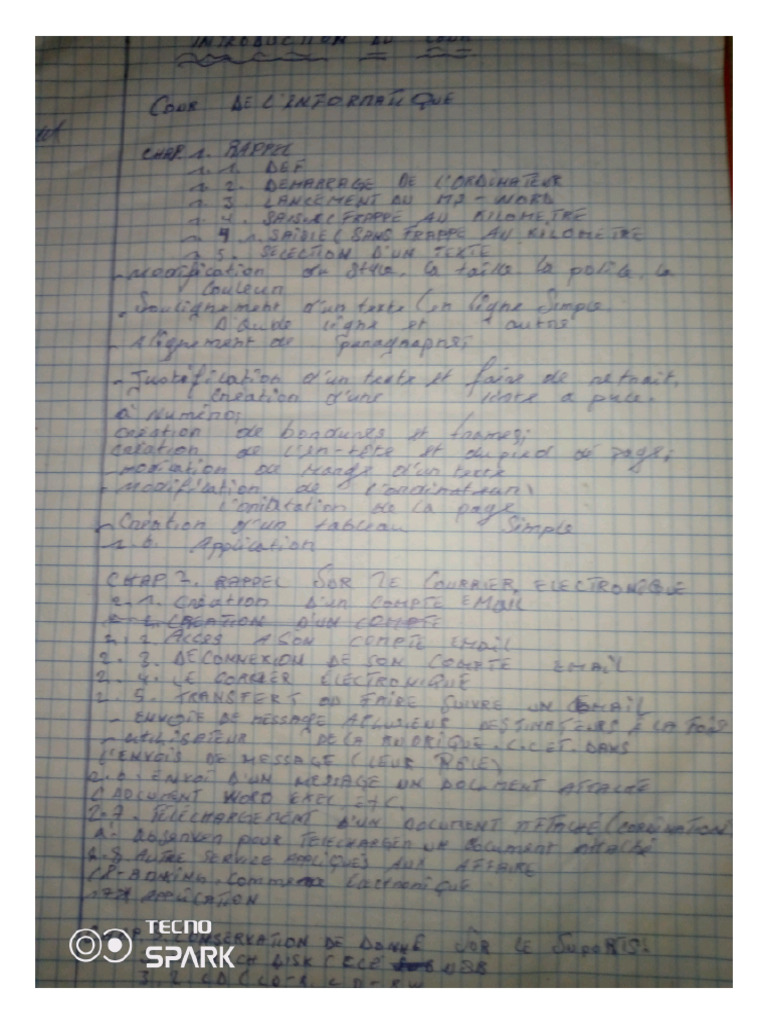 INTRODUCTION DU COUR
COUR DE L'INFORMATIQUE
CHAP.1. RAPPEL
1.1. DEF
1.2. DEMARRAGE DE L'ORDINATEUR
1.3 LANCEMENT DU MS-WORD
1.4. SAISIE (FRAPPE AU KILOMETRE
1.4.1. SAISIE (SANS FRAPPE AU KILOMETRE
1.5. SELECTION D'UN TEXTE
- Modification du style, la taille la police, la
couleur
- Soulignement d'un texte (en ligne simple.
ligne et autre
- Alignement de paragraphe;
- Justification d'un texte et faire de retrait,
Création d'une liste a puce.
à Numéro;
création de bordures et trames;
création de l'en-tête et du pied de page;
- de marge d'un texte
- Modification de l'ordinateur)
de la page
- Création d'un tableau Simple
1.6. Application
CHAP 2. RAPPEL SUR LE COURRIER ELECTRONIQUE
2.1. Création D'UN COMPTE EMAIL
CREATION D'UN COMPTE
2.2. ACCES A SON COMPTE EMAIL
2.3. DECONNEXION DE SON COMPTE EMAIL
2.4. LE COURRIER ELECTRONIQUE
2.5. TRANSFERT OU FAIRE SUIVRE UN EMAIL
- ENVOIE DE MESSAGE A PLUSIEUR DESTINATEURS A LA FOIS
- UTILISATEUR DE LA RUBRIQUE C.C ET DANS
L'ENVOIS DE MESSAGE (LEUR ROLE)
2.6. ENVOI D'UN MESSAGE UN DOCUMENT ATTACHE
WORD EXEL ETC.
2.7. TELECHARGEMENT D'UN DOCUMENT ATTACHE
pour TELECHARGER UN Document attaché
2.8 AUTRE SERVICE APPLIQUES AUX AFFAIRE
APPLICATION
CHAP 3. CONSERVATION DE DONNE SUR LE SUPORTS.
DISK (CLE USB
3.2. CD (CD-R, CD-RW
TECNO
SPARK